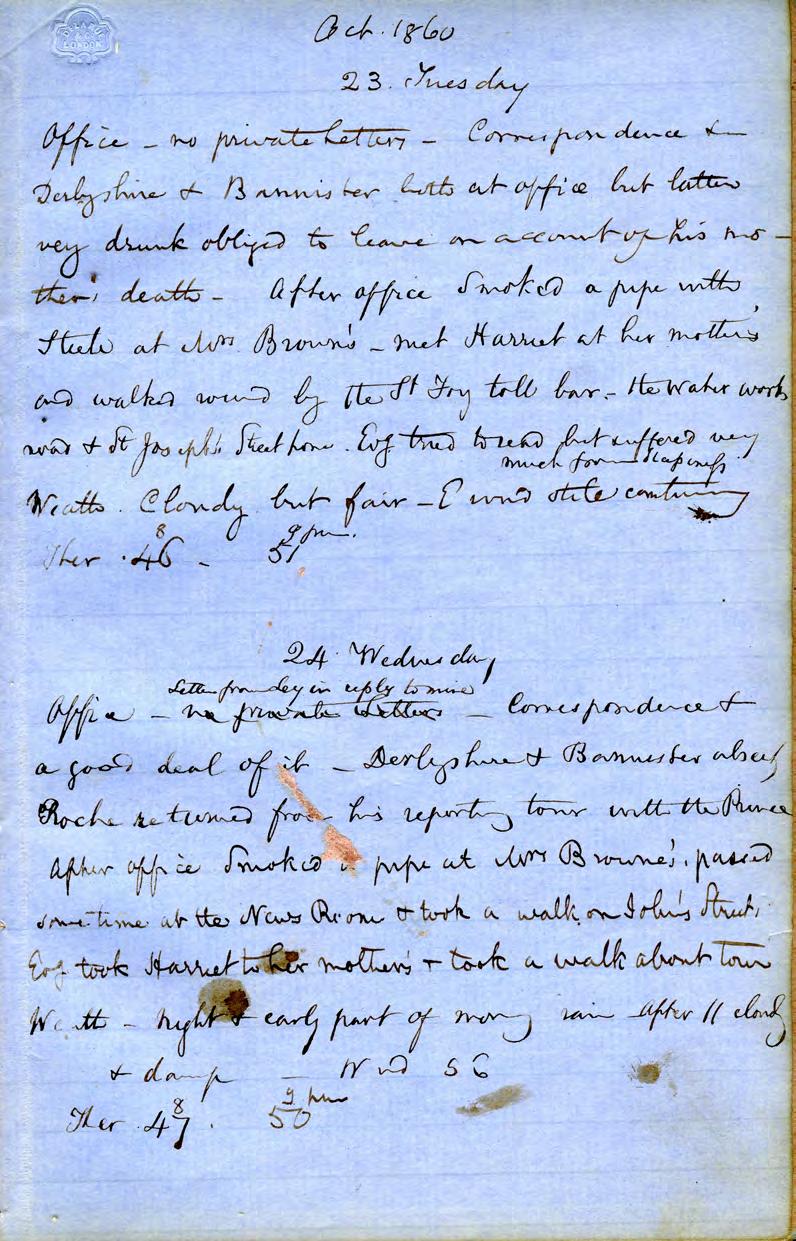 DELARUE
& Co
LONDON
Oct. 1860
23. Tuesday
Office – no private letters – Correspondence &
Derbyshire & Bannister both at office but latter
very drunk obliged to leave on account of his mo-
ther's death – After office Smoked a pipe with
Steele at Mrs Brown's – met Harriet at her mother's
and walked round by the St Foy toll bar – the water works
road & St Joseph's Street home. Evg tried to read but suffered very
much from
Weath. Cloudy but fair – E wind still continuing
Ther. 46 8 – 51 9 pm.
24 Wednesday
Letter from Ley in reply to mine
Office – no private letters – Correspondence &
a good deal of it – Derbyshire & Bannister absent
Roche returned from his reporting tour with the Prince
After office Smoked a pipe at Mrs Browne's, passed
some time at the News Room & took a walk on John's Street.
Evg took Harriet to her mother's & took a walk about town
Weath – Night & early part of morng rain After 11 cloudy
& damp – Wind
Ther. 47 8. 50 9 pm